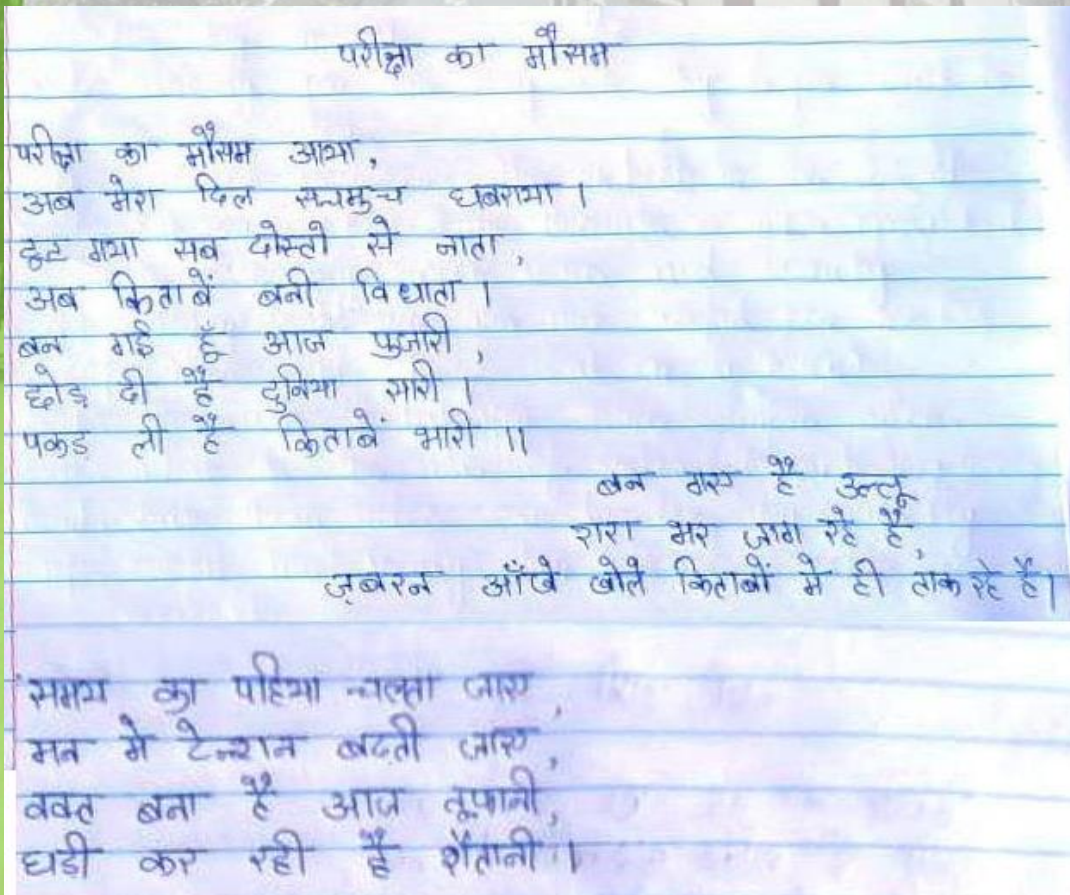 परीक्षा का मौसम
परीक्षा का मौसम आया,
अब मेरा दिल सचमुच घबराया ।
छुट गया सब दोस्तो से नाता,
अब किताबें बनी विधाता ।
बन गई हूँ आज पुजारी,
छोड़ दी है दुनिया सारी ।
पकड़ ली है किताबें भारी ॥
बन गए है उल्लू
भर जाग रहे है,
ज़बरन आँखे खोले किताबों मे ही ताक रहे है।
समय का पहिया चलता जाए,
मन मे टेन्शन बढती जाए,
वक्त बना है आज तूफानी,
घड़ी कर रही है शैतानी ।